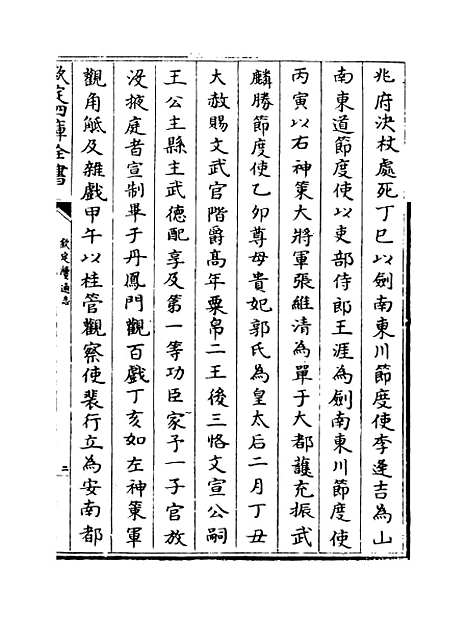 兆府決杖處死丁巳以劍南東川節度使李逢吉為山
南東道節度使以吏部侍郎王涯為劍南東川節度使
丙寅以右神策大將軍張維清為單于大都護充振武
麟勝節度使乙卯尊母貴妃郭氏為皇太后二月丁丑
大赦賜文武官階爵高年粟帛二王後三恪文宣公嗣
王公主縣主武德配享及第一等功臣家予一子官放
没掖庭者宣制畢于丹鳳門觀百戲丁亥如左神策軍
觀角觝及雜戲甲午以桂管觀察使裴行立為安南都
欽定四庫全書
欽定續通志
二